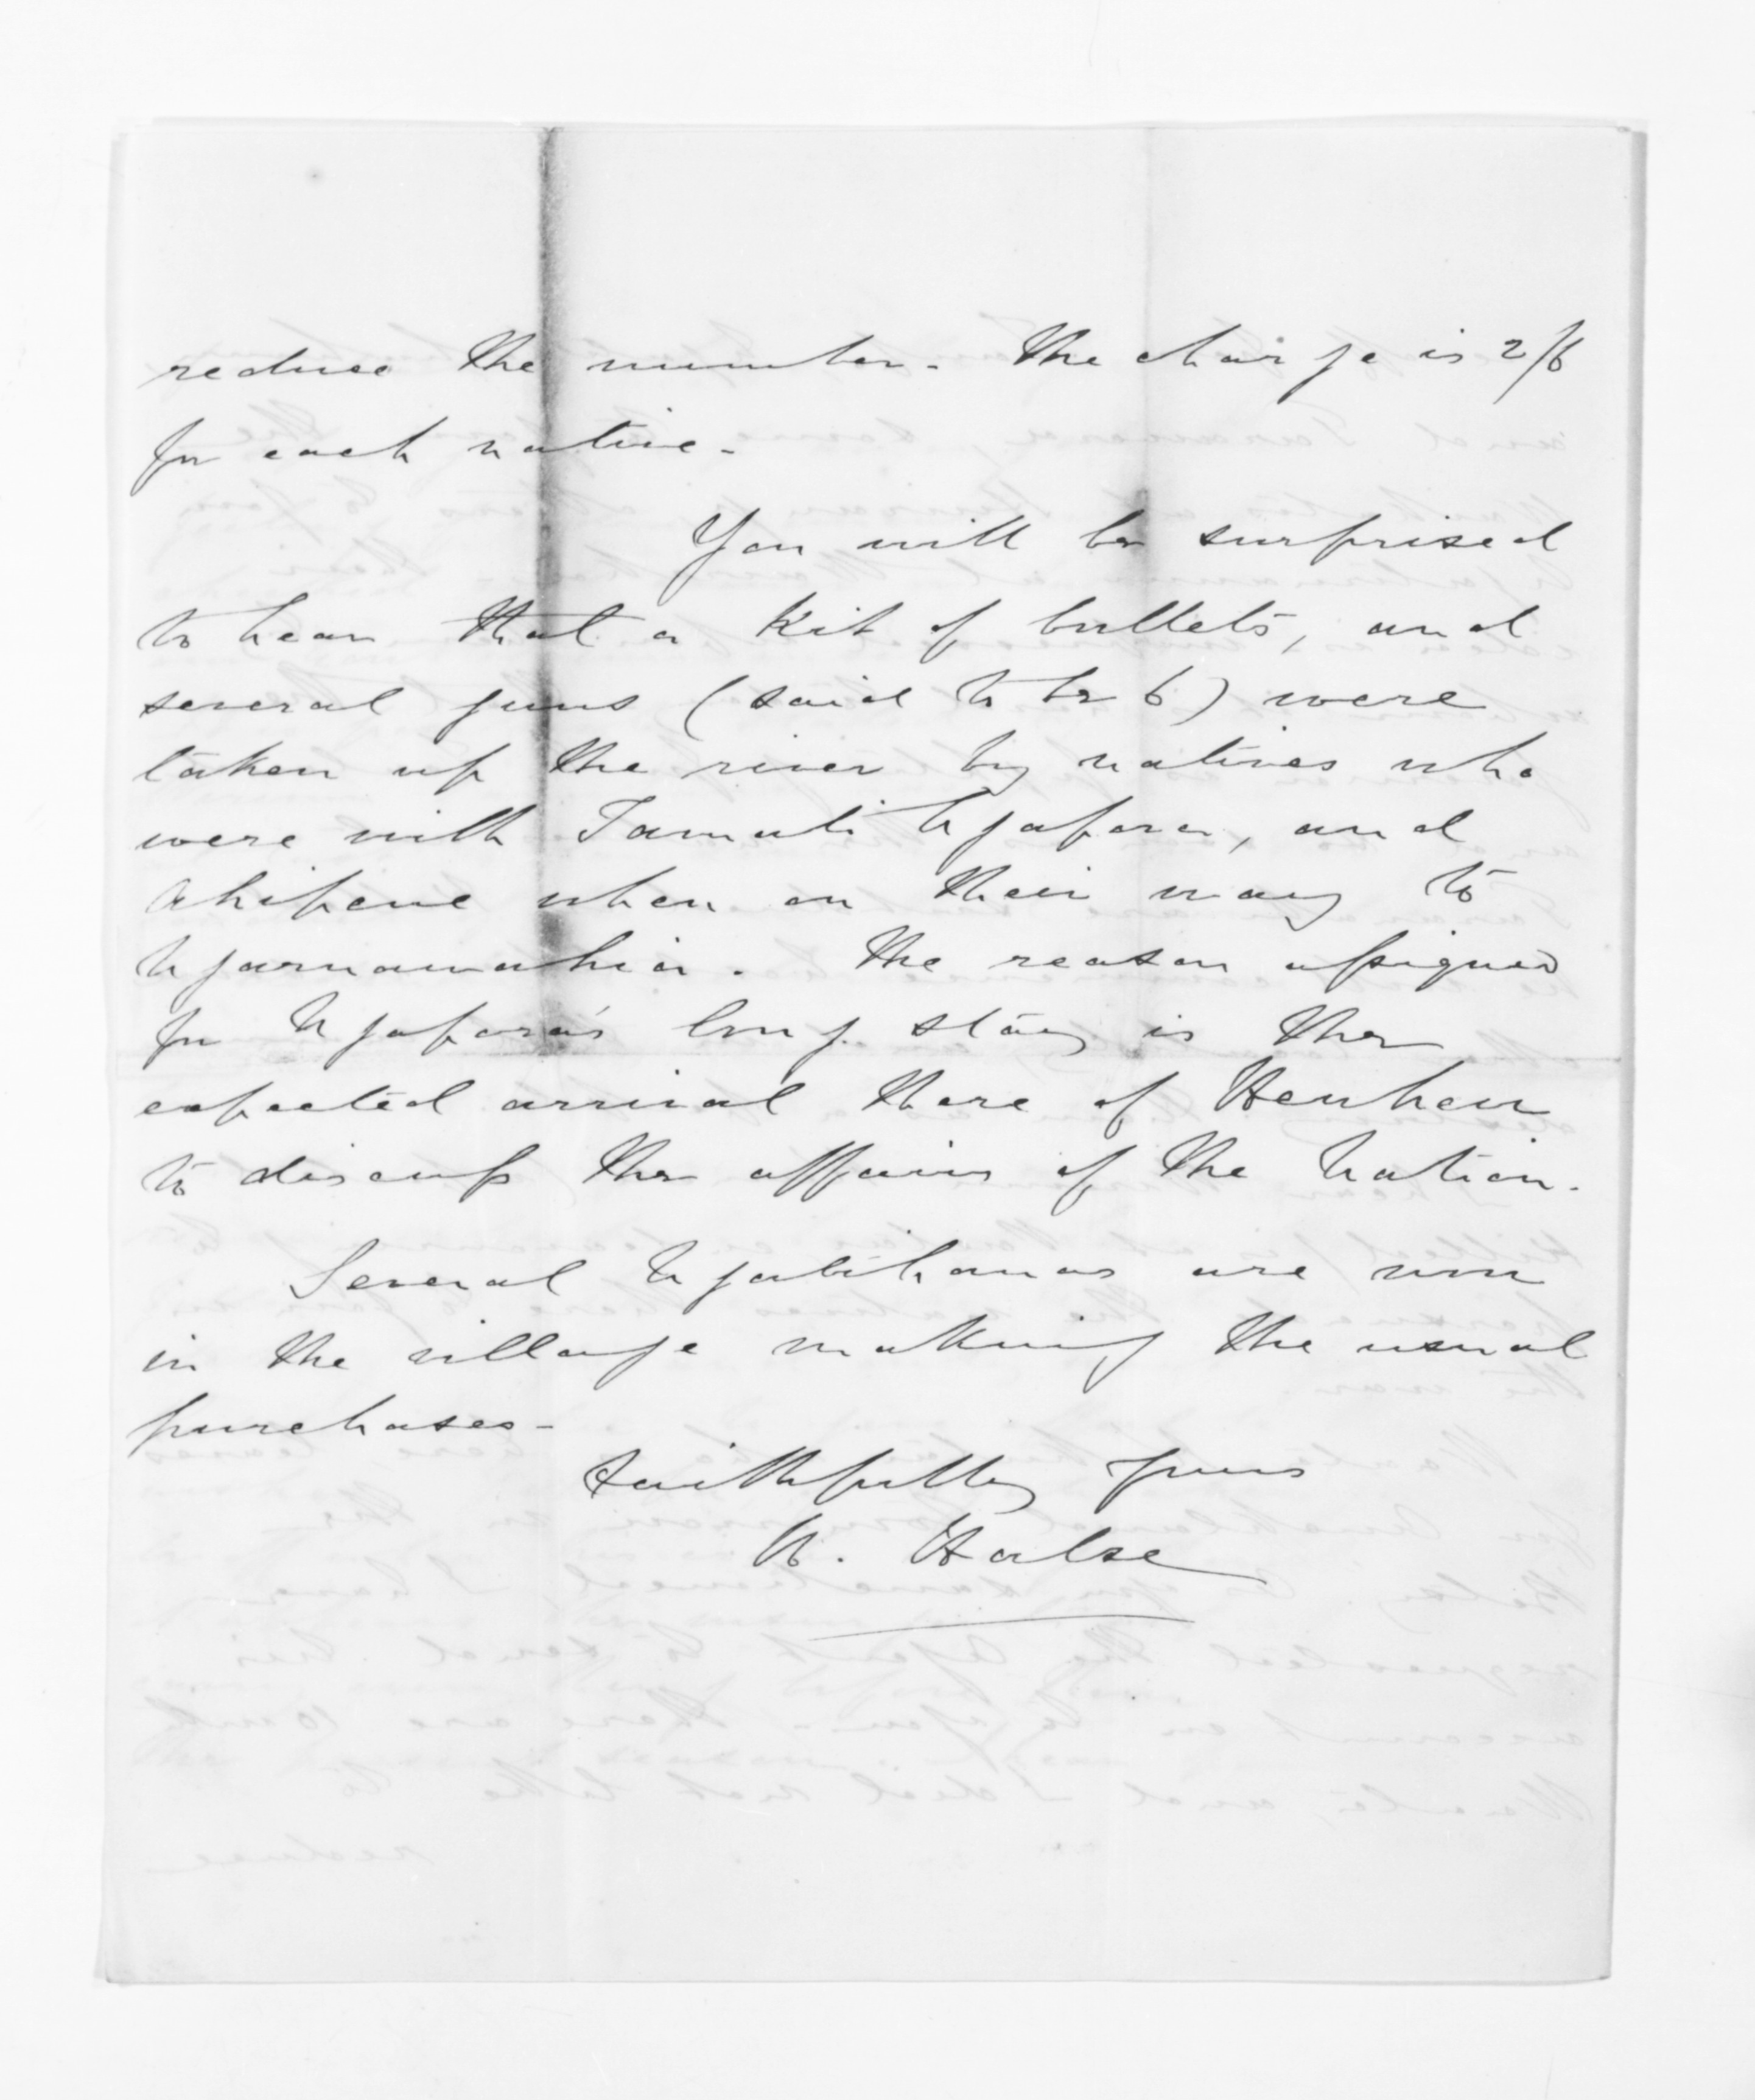 reduce the number - The charge is 2/6
for each native -
You will be surprised
to hear that a Kit of bullets, and
several guns (said to be 6) were
taken up the river by natives who
were with Tamati Ngapora, and
Ahipene when on their way to
Ngaruawahia. The reason assigned
for Ngapora's long stay is the
expected arrival there of Heuheu
to discuss the affairs of the Nation.
Several Ngatihauas are now
in the village making the usual
purchases -
Faithfully yours
H. Halse